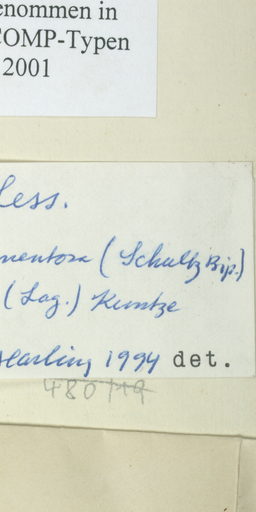 enommen in
COMP-Typen
2001
Less.
mentosa (Schultz Bip.)
(Lag.) Kuntze
Harling 1994 det.